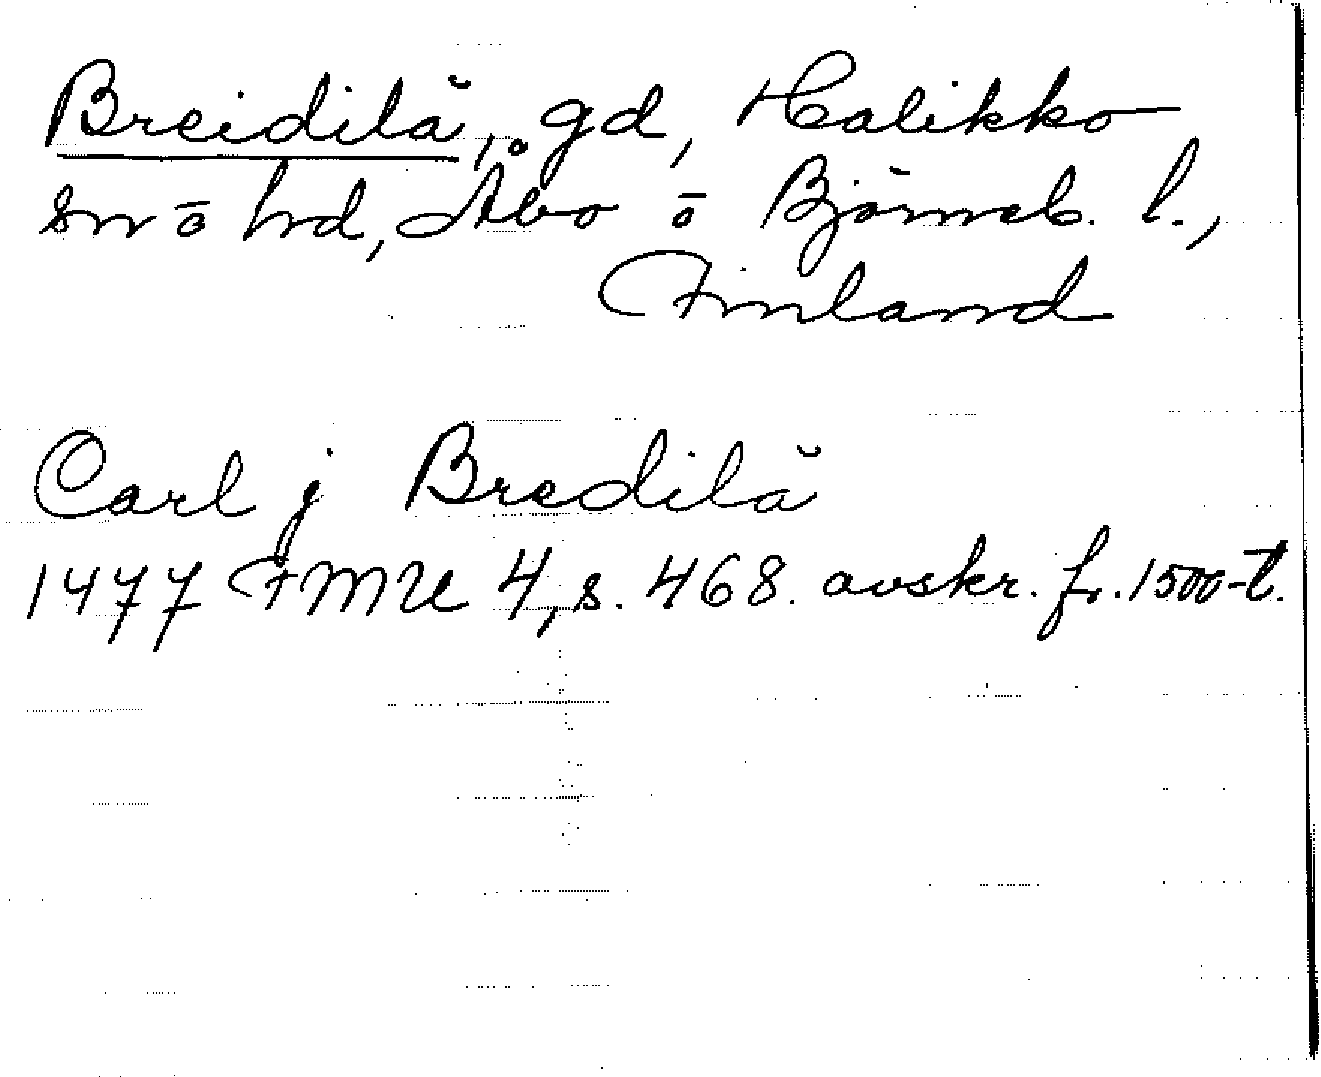 Breidilä, gd, Halikko
sn o hd, Åbo o Björneb. l.,
Finland
Carl j Bredilä
1477 FMU 4, s. 468. avskr. fr. 1500-t.